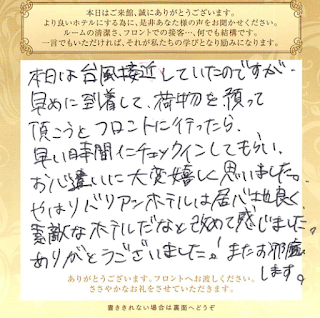 本日はご来館、誠にありがとうございます。
より良いホテルにする為に、是非あなた様の声をお聞かせください。
ルームの清潔さ、フロントでの接客…、何でも結構です。
一言でもいただければ、それが私たちの学びとなり励みになります。
本日は台風接近していたのですが、
早めに到着して、荷物を預って
頂こうとフロントに行ったら、
早い時間にチェックインしてもらい、
お心遣いに大変嬉しく思いました。
やはりバリアンホテルは居心地良く、
素敵なホテルだなと改めて感じました。
ありがとうございました!またお邪魔
します。
ありがとうございます。フロントへお渡しください。
ささやかなお礼をさせていただきます。
書ききれない場合は裏面へどうぞ